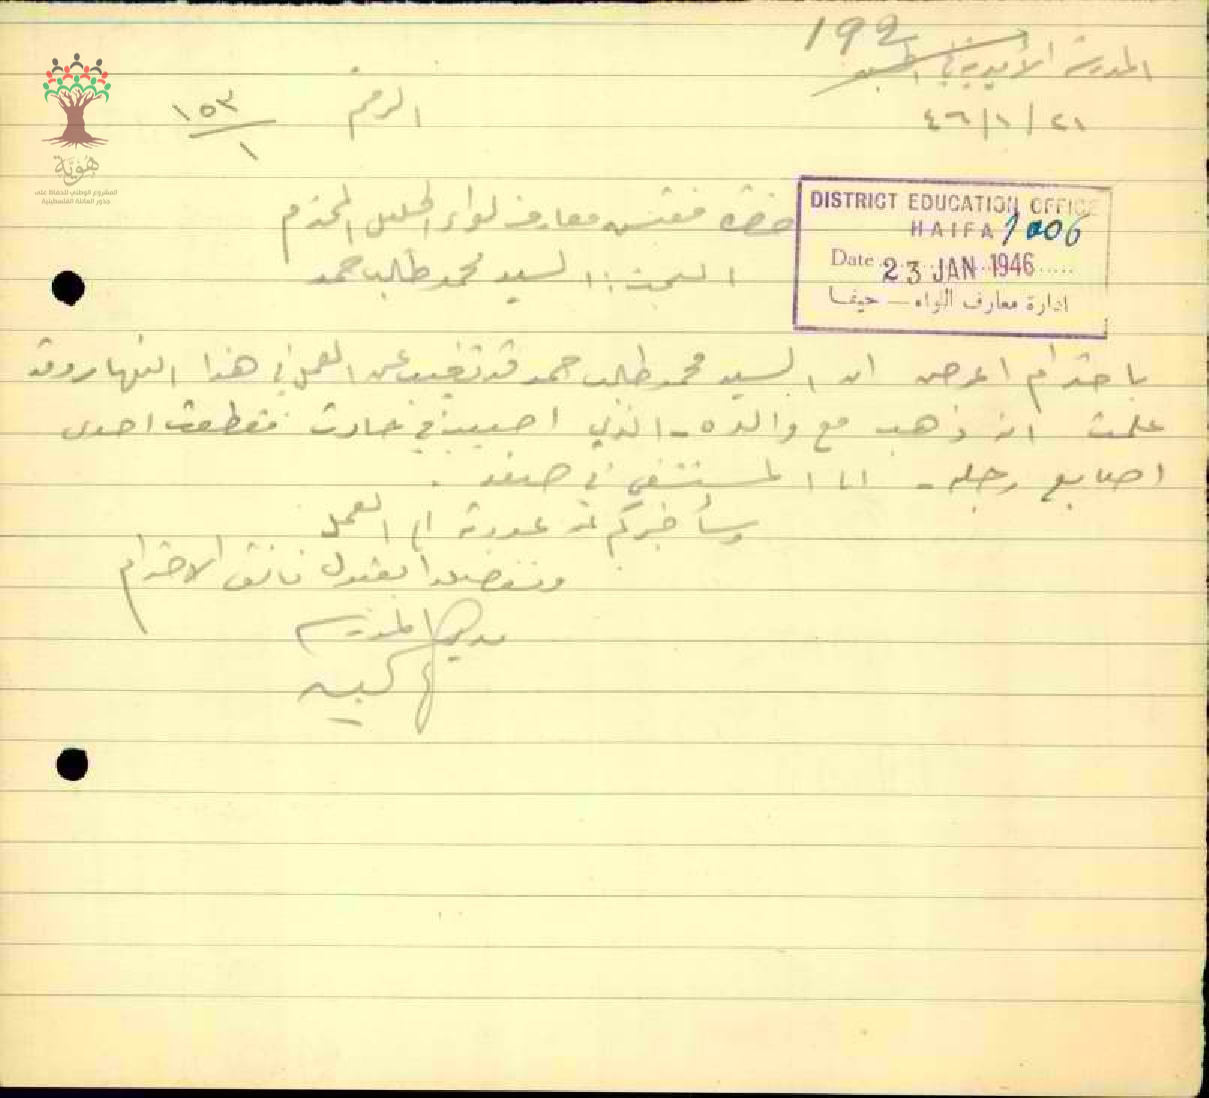 192
المدرسة الأميرية في
٢١/١/٤٦
الرقم ١٥٣/١
هُويّة
المشروع الوطني للحفاظ على
جذور العائلة الفلسطينية
DISTRICT EDUCATION OFFICE
HAIFA 1006
Date 23 JAN 1946
ادارة معارف اللواء — حيفا
حضرة مفتش معارف لواء الجليل المحترم
البحث: السيد محمد طالب حمد
باحترام اعرض ان السيد محمد طالب حمد قد تغيب عن العمل في هذا النهار وقد
علمت انه ذهب مع والده - الذي اصيب في حادث فقطعت احدى
اصابع رجله - الى المستشفى في صفد .
وسأخبركم عن عودته الى العمل
وتفضلوا بقبول فائق الاحترام
مدير المدرسة